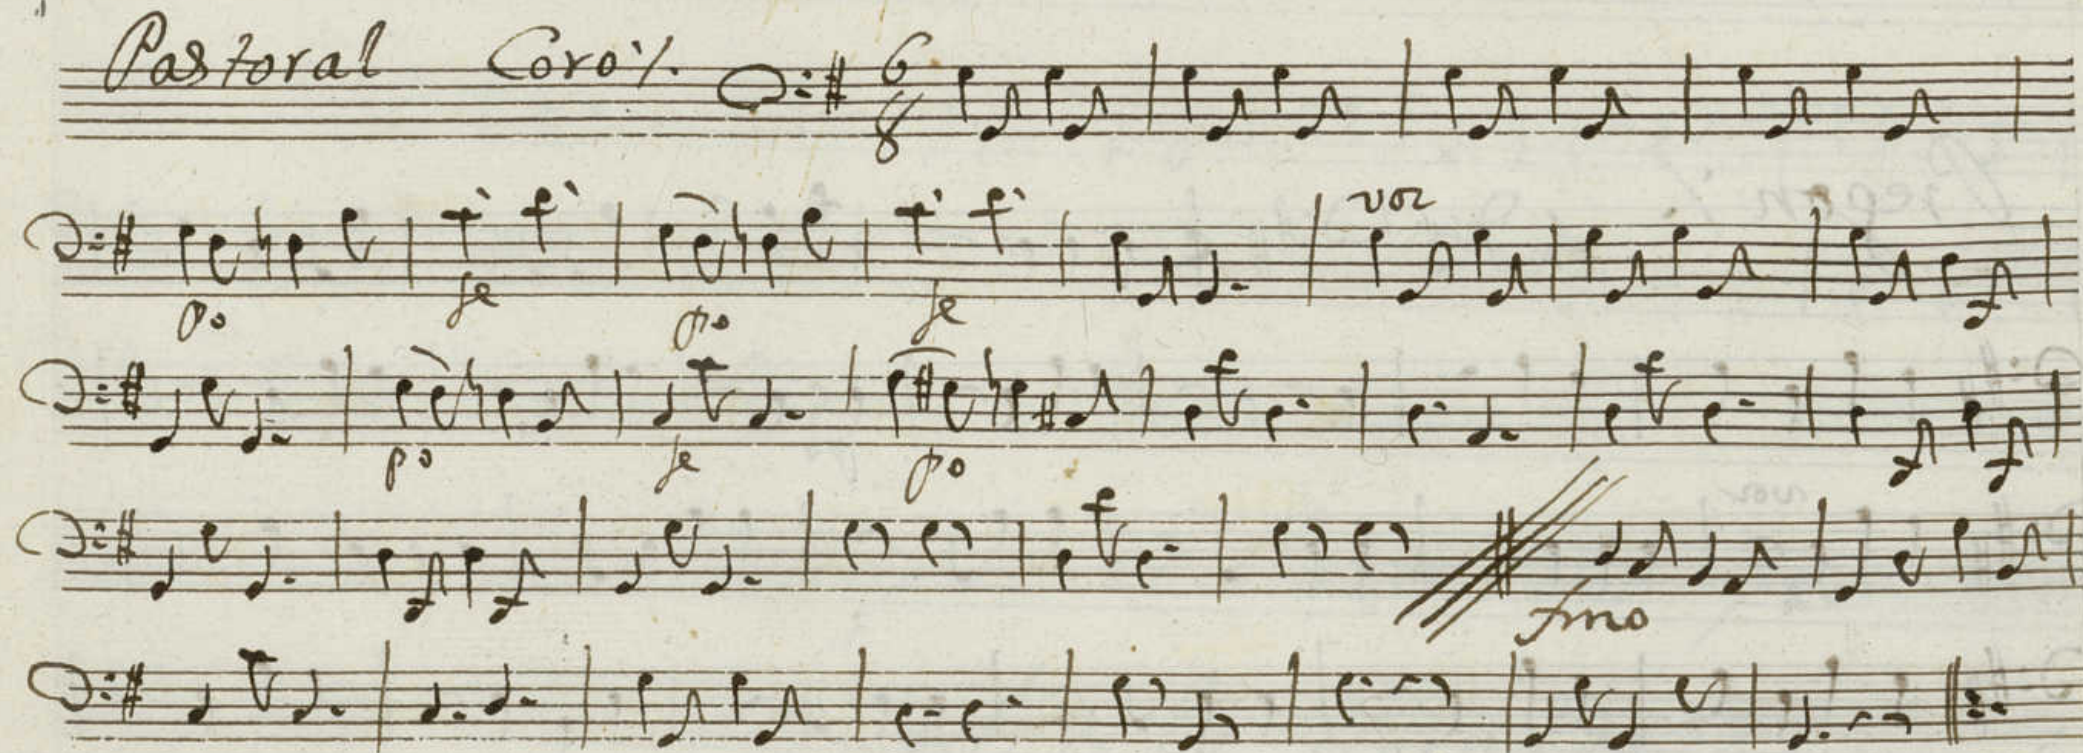 Pastoral Coro ·/. 6 8
voz
po fe po fe
po fe po
fmo